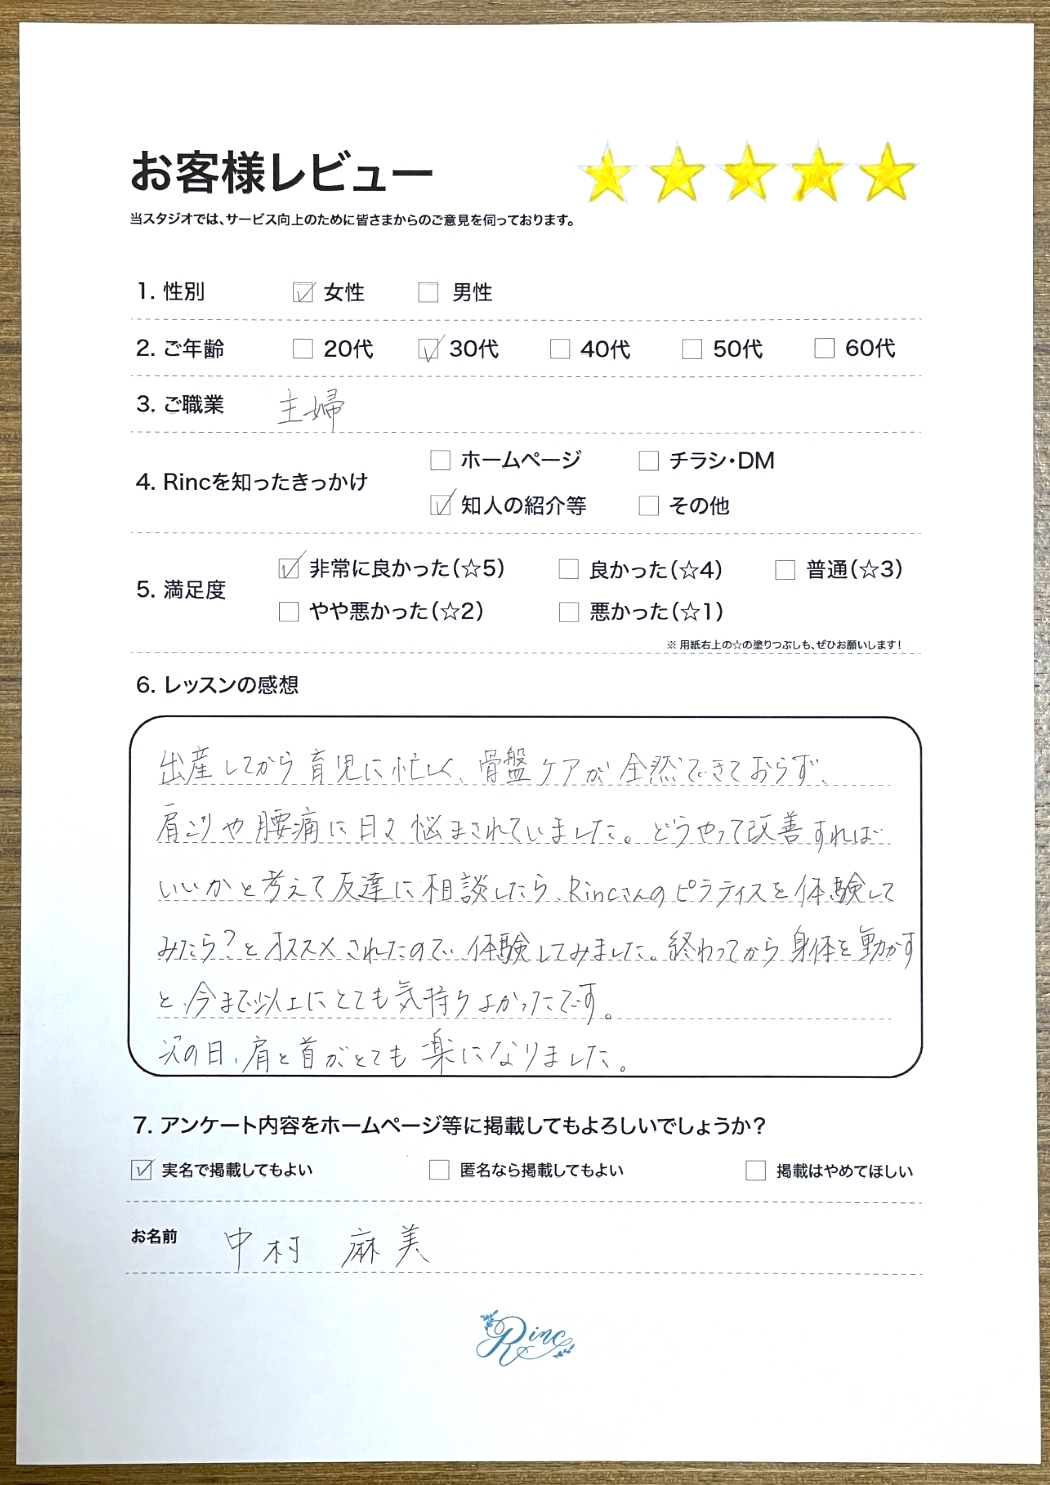 お客様レビュー
当スタジオでは、サービス向上のために皆さまからのご意見を伺っております。
1. 性別 ☑ 女性 □ 男性
2. ご年齢 □ 20代 ☑ 30代 □ 40代 □ 50代 □ 60代
3. ご職業 主婦
4. Rincを知ったきっかけ
□ ホームページ □ チラシ・DM
☑ 知人の紹介等 □ その他
5. 満足度
☑ 非常に良かった(☆5) □ 良かった(☆4) □ 普通(☆3)
□ やや悪かった(☆2) □ 悪かった(☆1)
※ 用紙右上の☆の塗りつぶしも、ぜひお願いします!
6. レッスンの感想
出産してから育児に忙しく、骨盤ケアが全然できておらず、
肩こりや腰痛に日々悩まされていました。どうやって改善すれば
いいかと考えて友達に相談したら、Rincさんのピラティスを体験して
みたら?とオススメされたので、体験してみました。終わってから身体を動かす
と、今まで以上にとても気持ちよかったです。
次の日、肩と首がとても楽になりました。
7. アンケート内容をホームページ等に掲載してもよろしいでしょうか?
☑ 実名で掲載してもよい □ 匿名なら掲載してもよい □ 掲載はやめてほしい
お名前 中村 麻美
Rinc